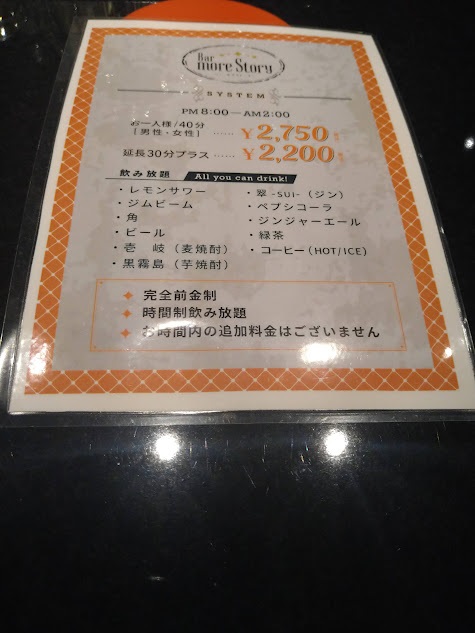 Bar
more Story
SYSTEM
PM 8:00 — AM 2:00
お一人様/40分
[男性・女性] …… ¥2,750
延長30分プラス …… ¥2,200
飲み放題 All you can drink!
・レモンサワー
・ジムビーム
・角
・ビール
・壱岐(麦焼酎)
・黒霧島(芋焼酎)
・翠-SUI-(ジン)
・ペプシコーラ
・ジンジャーエール
・緑茶
・コーヒー(HOT/ICE)
完全前金制
時間制飲み放題
お時間内の追加料金はございません